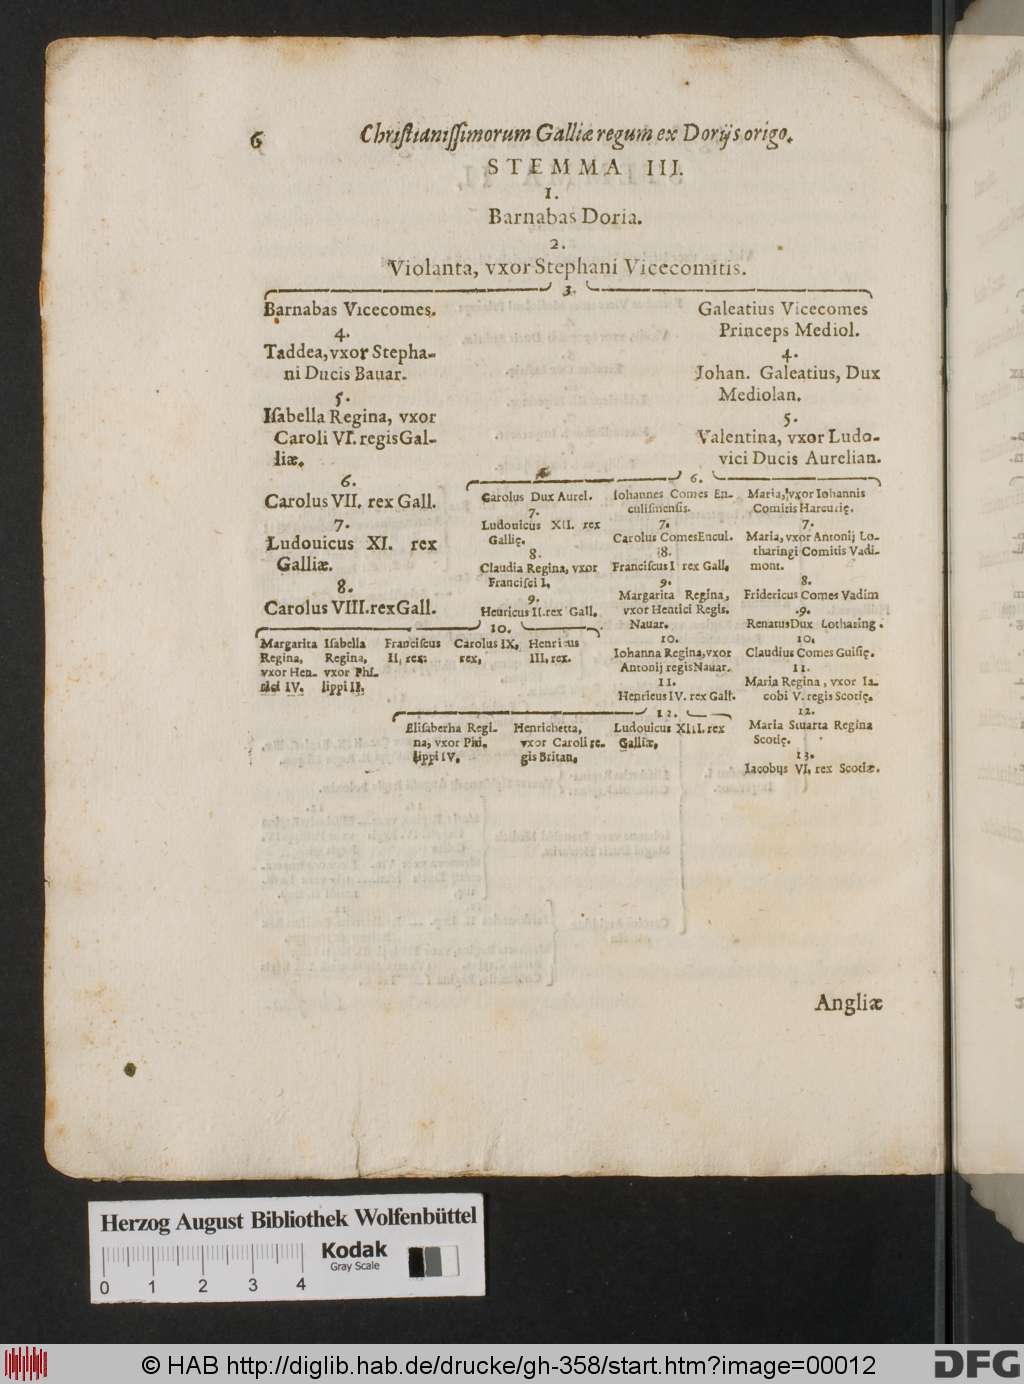 6
Christianissimorum Galliæ regum ex Dorijs origo.
STEMMA III.
1.
Barnabas Doria.
2.
Violanta, vxor Stephani Vicecomitis.
3.
Barnabas Vicecomes.
4.
Taddea, vxor Stepha-
ni Ducis Bauar.
5.
Isabella Regina, vxor
Caroli VI. regis Gal-
liæ.
6.
Carolus VII. rex Gall.
7.
Ludouicus XI. rex
Galliæ.
8.
Carolus VIII. rex Gall.
Galeatius Vicecomes
Princeps Mediol.
4.
Johan. Galeatius, Dux
Mediolan.
5.
Valentina, vxor Ludo-
vici Ducis Aurelian.
6.
6.
Carolus Dux Aurel.
7.
Ludouicus XII. rex
Gallię.
8.
Claudia Regina, vxor
Francisci I.
9.
Henricus II. rex Gall.
10.
Margarita
Regina,
vxor Hen-
rici IV.
Isabella
Regina,
vxor Phi-
lippi II.
Franciscus
II. rex.
Carolus IX.
rex,
Henricus
III, rex.
Iohannes Comes En-
culismensis.
7.
Carolus Comes Encul.
8.
Franciscus I rex Gall.
9.
Margarita Regina,
vxor Hentici Regis.
Nauar.
10.
Iohanna Regina, vxor
Antonij regis Nauar.
11.
Henricus IV. rex Gall.
12.
Elisabetha Regi-
na, vxor Phi-
lippi IV.
Henrichetta,
vxor Caroli re-
gis Britan.
Ludouicus XIII. rex
Galliæ,
Maria, vxor Iohannis
Comitis Harcurię.
7.
Maria, vxor Antonij Lo-
tharingi Comitis Vadi-
mont.
8.
Fridericus Comes Vadim
.9.
Renatus Dux Lotharing.
10.
Claudius Comes Guisię.
11.
Maria Regina, vxor Ia-
cobi V. regis Scotię.
12.
Maria Stuarta Regina
Scotię.
13.
Iacobus VI, rex Scotiæ.
Angliæ
Herzog August Bibliothek Wolfenbüttel
Kodak
Gray Scale
0 1 2 3 4
© HAB http://diglib.hab.de/drucke/gh-358/start.htm?image=00012
DFG